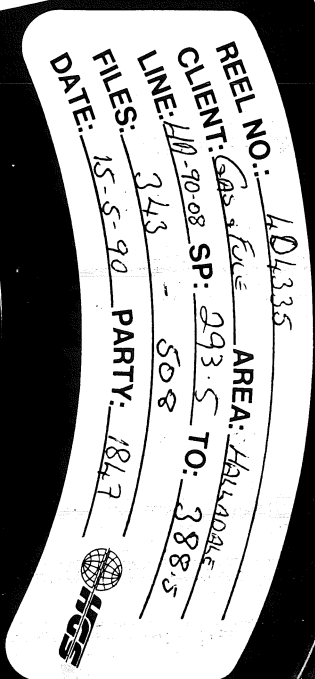 REEL NO.: 4D4335
CLIENT: GAS & FUEL AREA: HALLADALE
LINE: HA-90-08 SP: 293.5 TO: 388.5
FILES: 343 - 508
DATE: 15-5-90 PARTY: 1847
HGS